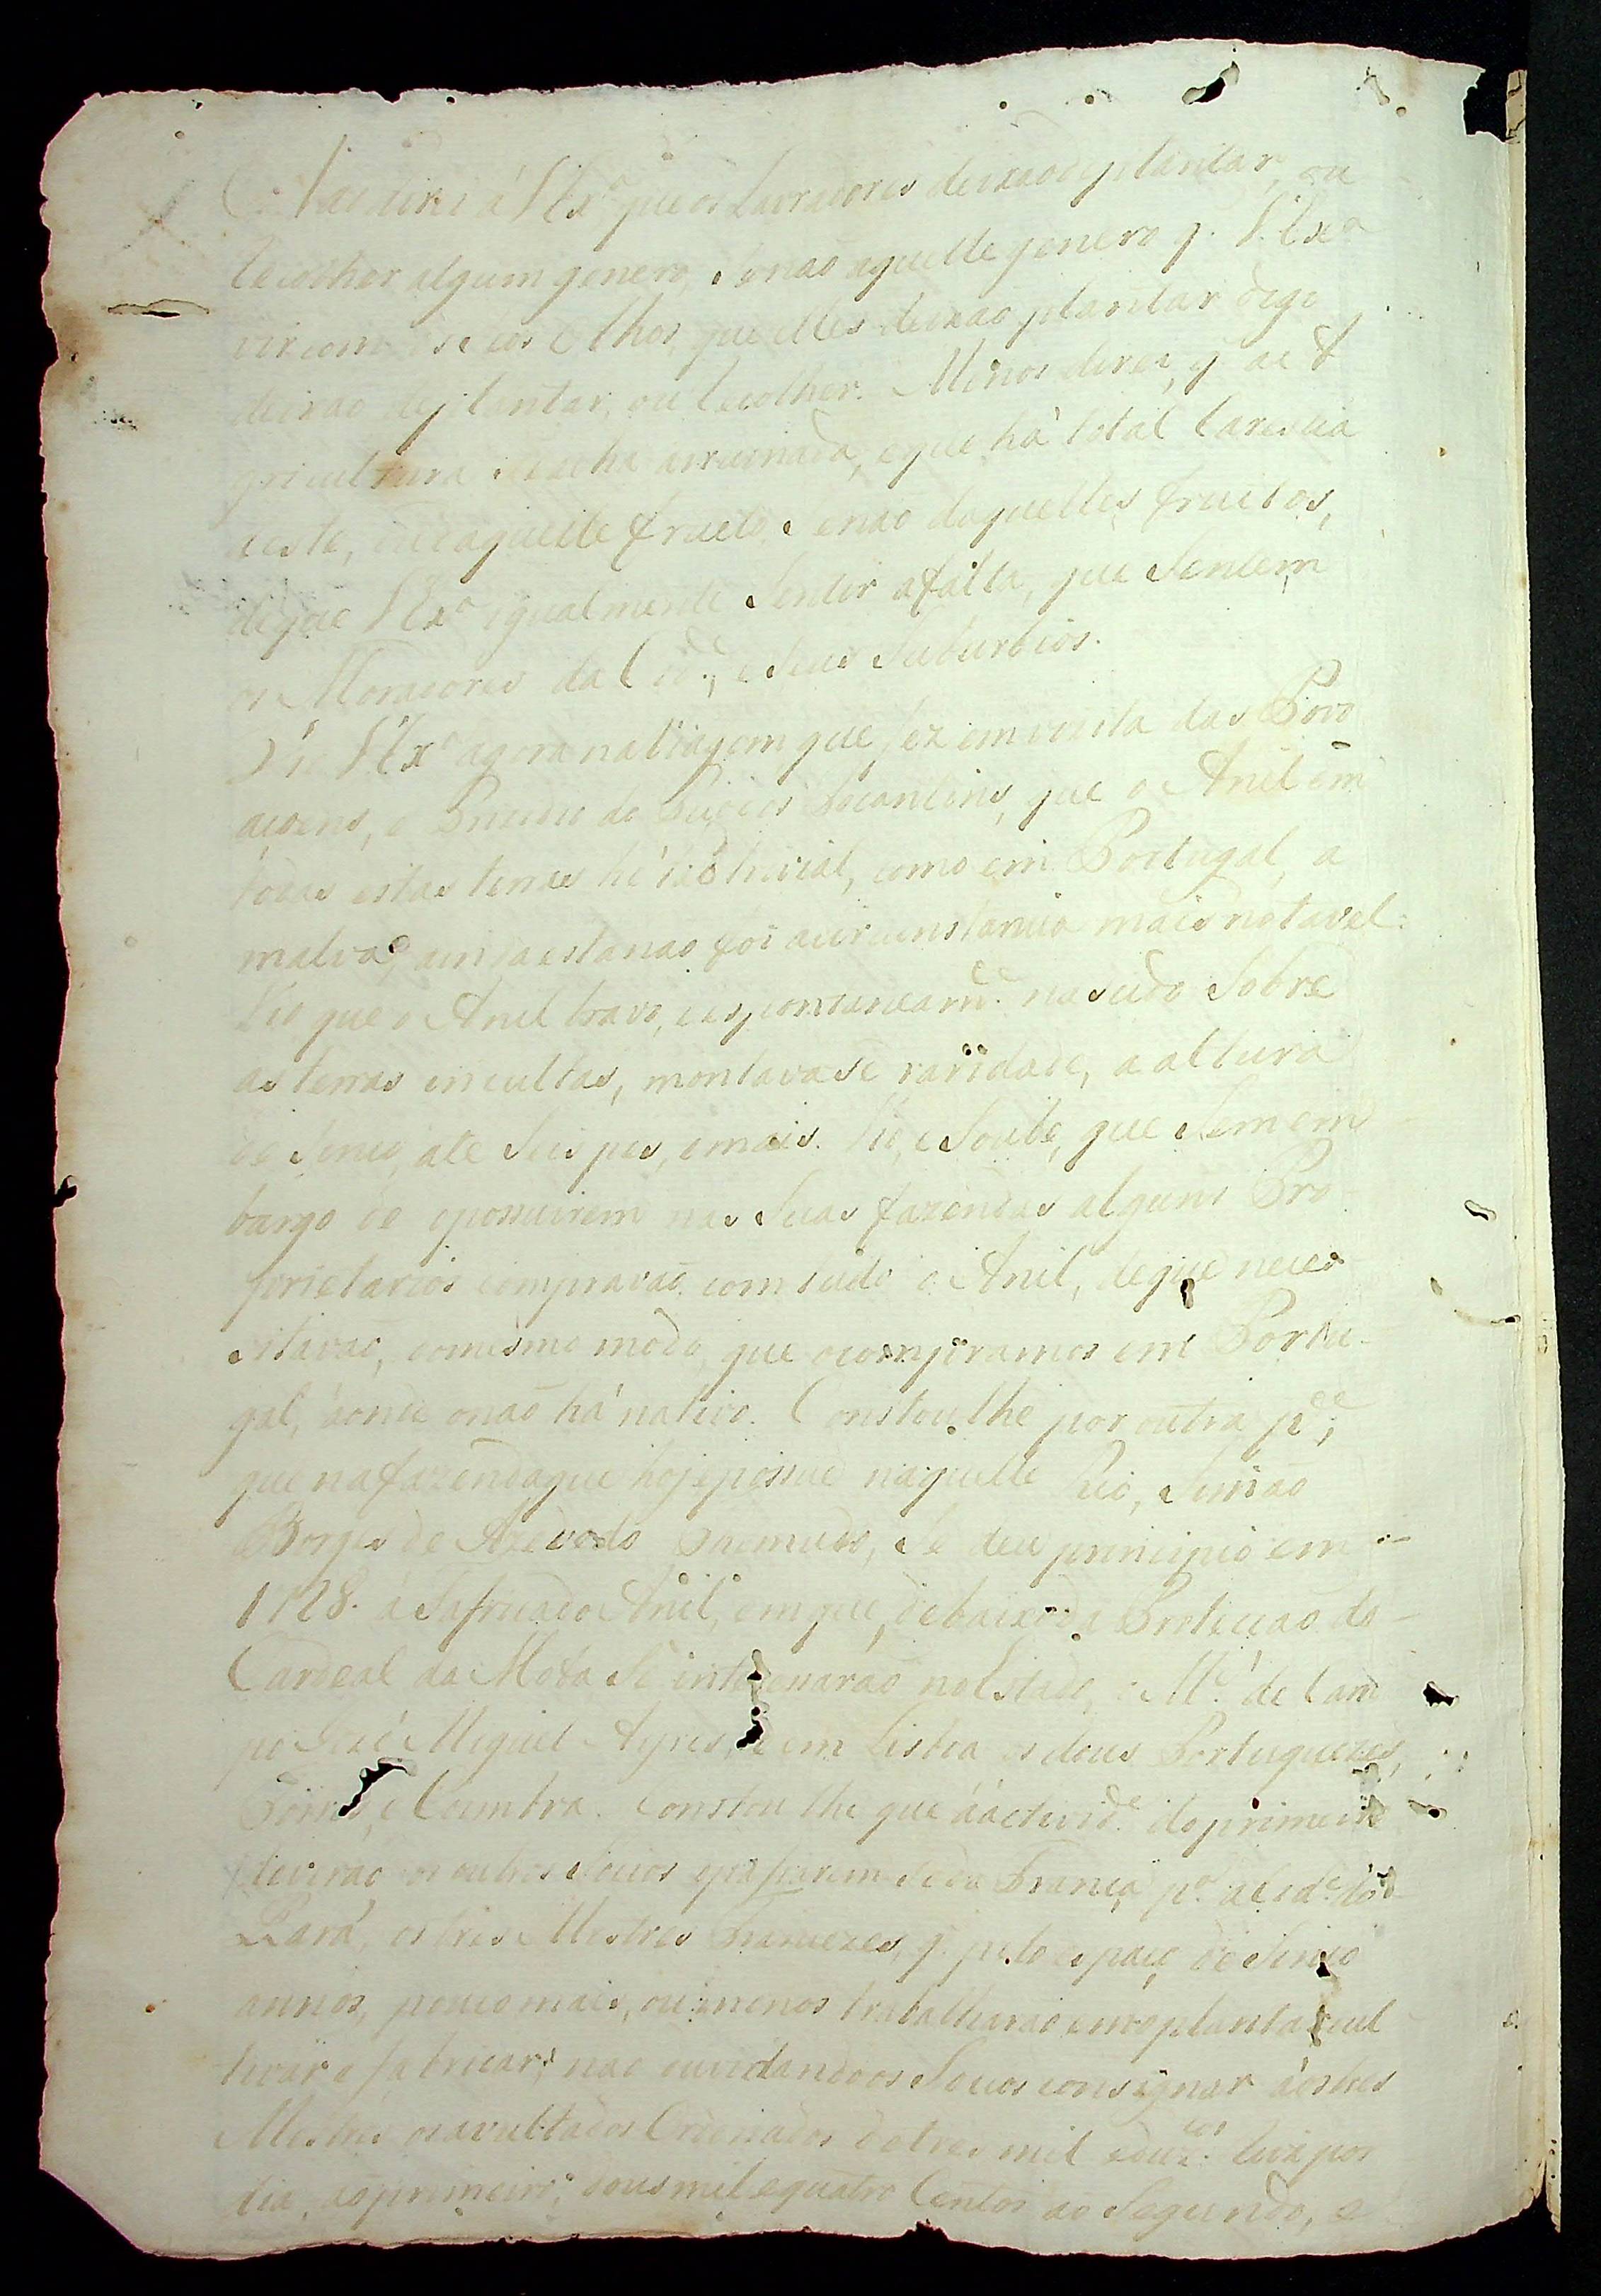 Naõ direi á V Exª que os Lavradores deixaõ de plantar, ou
recolher algum genero, senaõ aquelle genero q. V. Exª
vir com os seos olhos, que elles deixaõ plantar digo
deixaõ de plantar, ou recolher. Menos direi, q. a A
gricultura se acha arruinada, e que há total carencia
deste, ou daquelle fructo, senaõ daquelles fructos,
de que V Exª igualmente sentir a falta, que sentem
os Moradores da Cidᵉ, e seus suburbios.
Vio V Exª agora na viagem que fez em vizita das Povo
açoens, e Engenhos do Rio dos Tocantins, que o Anil em
todas estas terras hé taõ trivial, como em Portugal, a
malva; ainda esta naõ foi a circunstancia mais notavel:
Vio que o Anil bravo, e espontaneamᵉ nascido sobre
as terras incultas, montava se raridade, a altura
de sinco, ate seis pes, e mais. Vio, e soube, que sem em
bargo de o possuirem nas suas fazendas alguns Pro
prietarios compravaõ com tudo o Anil, de que neces
sitavaõ, do mesmo modo, que o compramos em Portu-
gal, aonde o naõ há nativo. Constou lhe por outra pᵉ,
que na fazenda que hoje possue naquelle Rio, Simaõ
Borges de Azevedo, se deu principio em
1728. á Safrica do Anil, em que, debaixo da Protecçaõ do
Cardeal da Mota se interessaraõ no Estado, o Mᵉ de Cam
po José Miguel Ayres, e em Lisboa os dous Portuguezes,
e Coimbra. Constou lhe que á actividᵉ do primeiro
deveraõ os outros Socios passarem-se da França pª a cidᵉ do
Pará, os tres Mestres Francezes, q. pelo espaço de sinco
annos, pouco mais, ou menos trabalharaõ em o plantar, cul
tivar e fabricar; naõ duvidando os Socios consignar aos tres
Mestres os avultados Ordenados de tres mil e duzᵗᵒˢ reis por
dia, ao primeiro; dous mil e quatro Centos ao Segundo, e